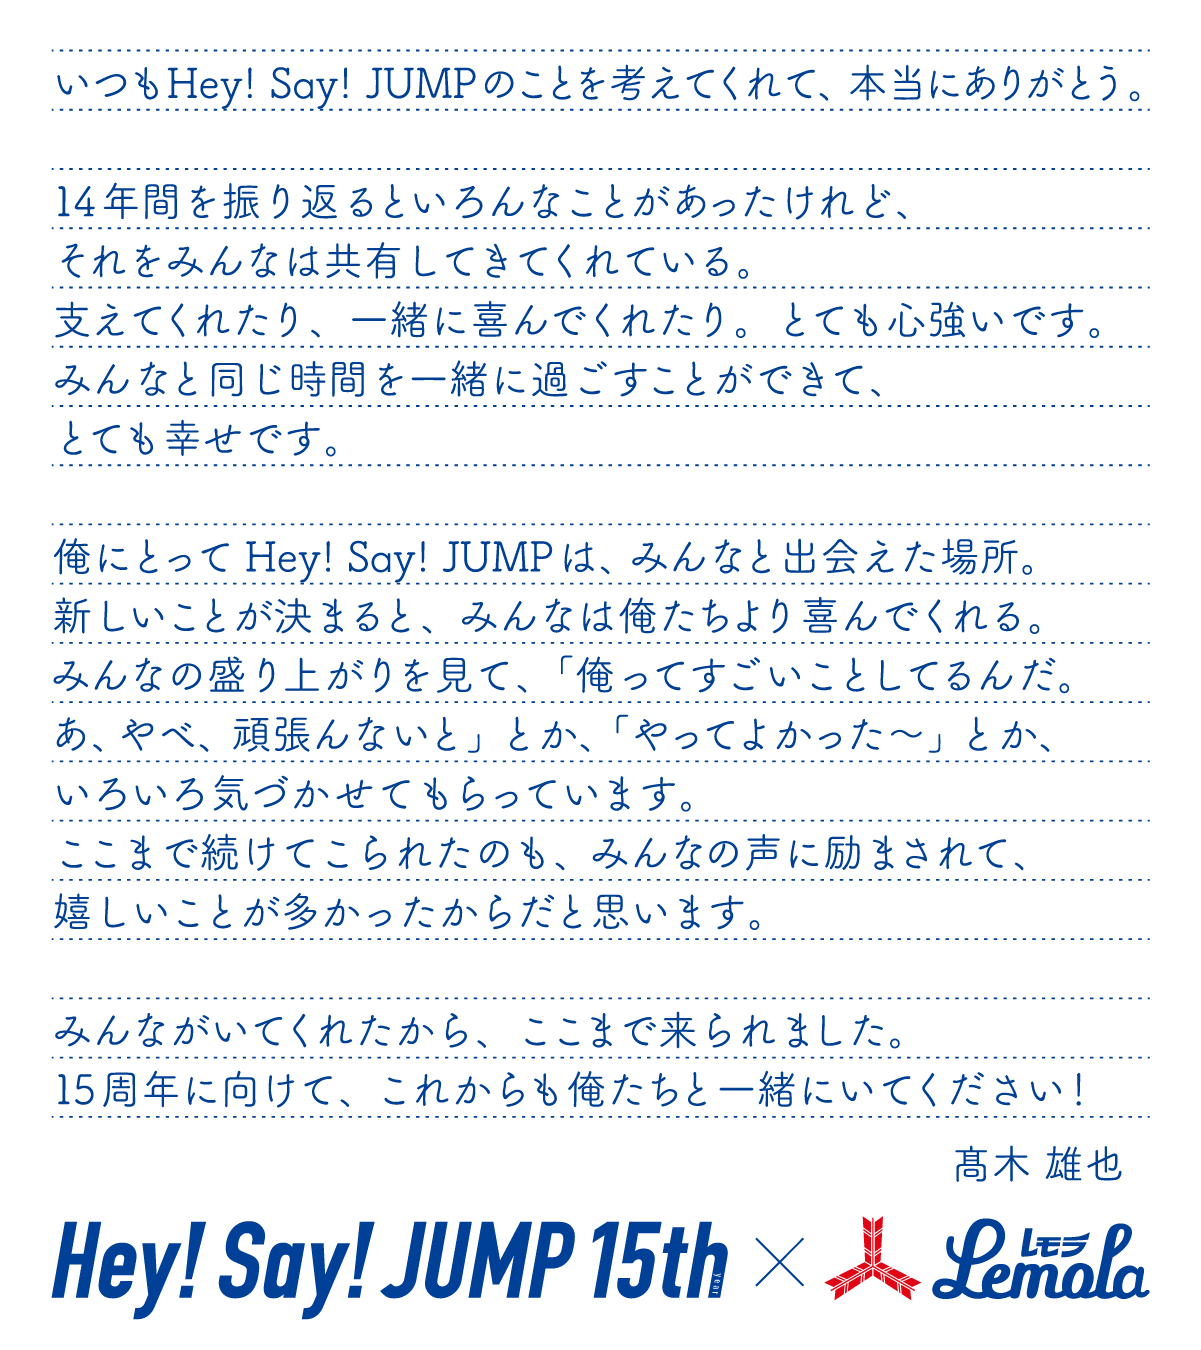 いつもHey! Say! JUMPのことを考えてくれて、本当にありがとう。
14年間を振り返るといろんなことがあったけれど、
それをみんなは共有してきてくれている。
支えてくれたり、一緒に喜んでくれたり。とても心強いです。
みんなと同じ時間を一緒に過ごすことができて、
とても幸せです。
俺にとって Hey! Say! JUMPは、みんなと出会えた場所。
新しいことが決まると、みんなは俺たちより喜んでくれる。
みんなの盛り上がりを見て、「俺ってすごいことしてるんだ。
あ、やべ、頑張んないと」とか、「やってよかった〜」とか、
いろいろ気づかせてもらっています。
ここまで続けてこられたのも、みんなの声に励まされて、
嬉しいことが多かったからだと思います。
みんながいてくれたから、ここまで来られました。
15周年に向けて、これからも俺たちと一緒にいてください！
髙木 雄也
Hey! Say! JUMP 15th year × レモラ Lemola